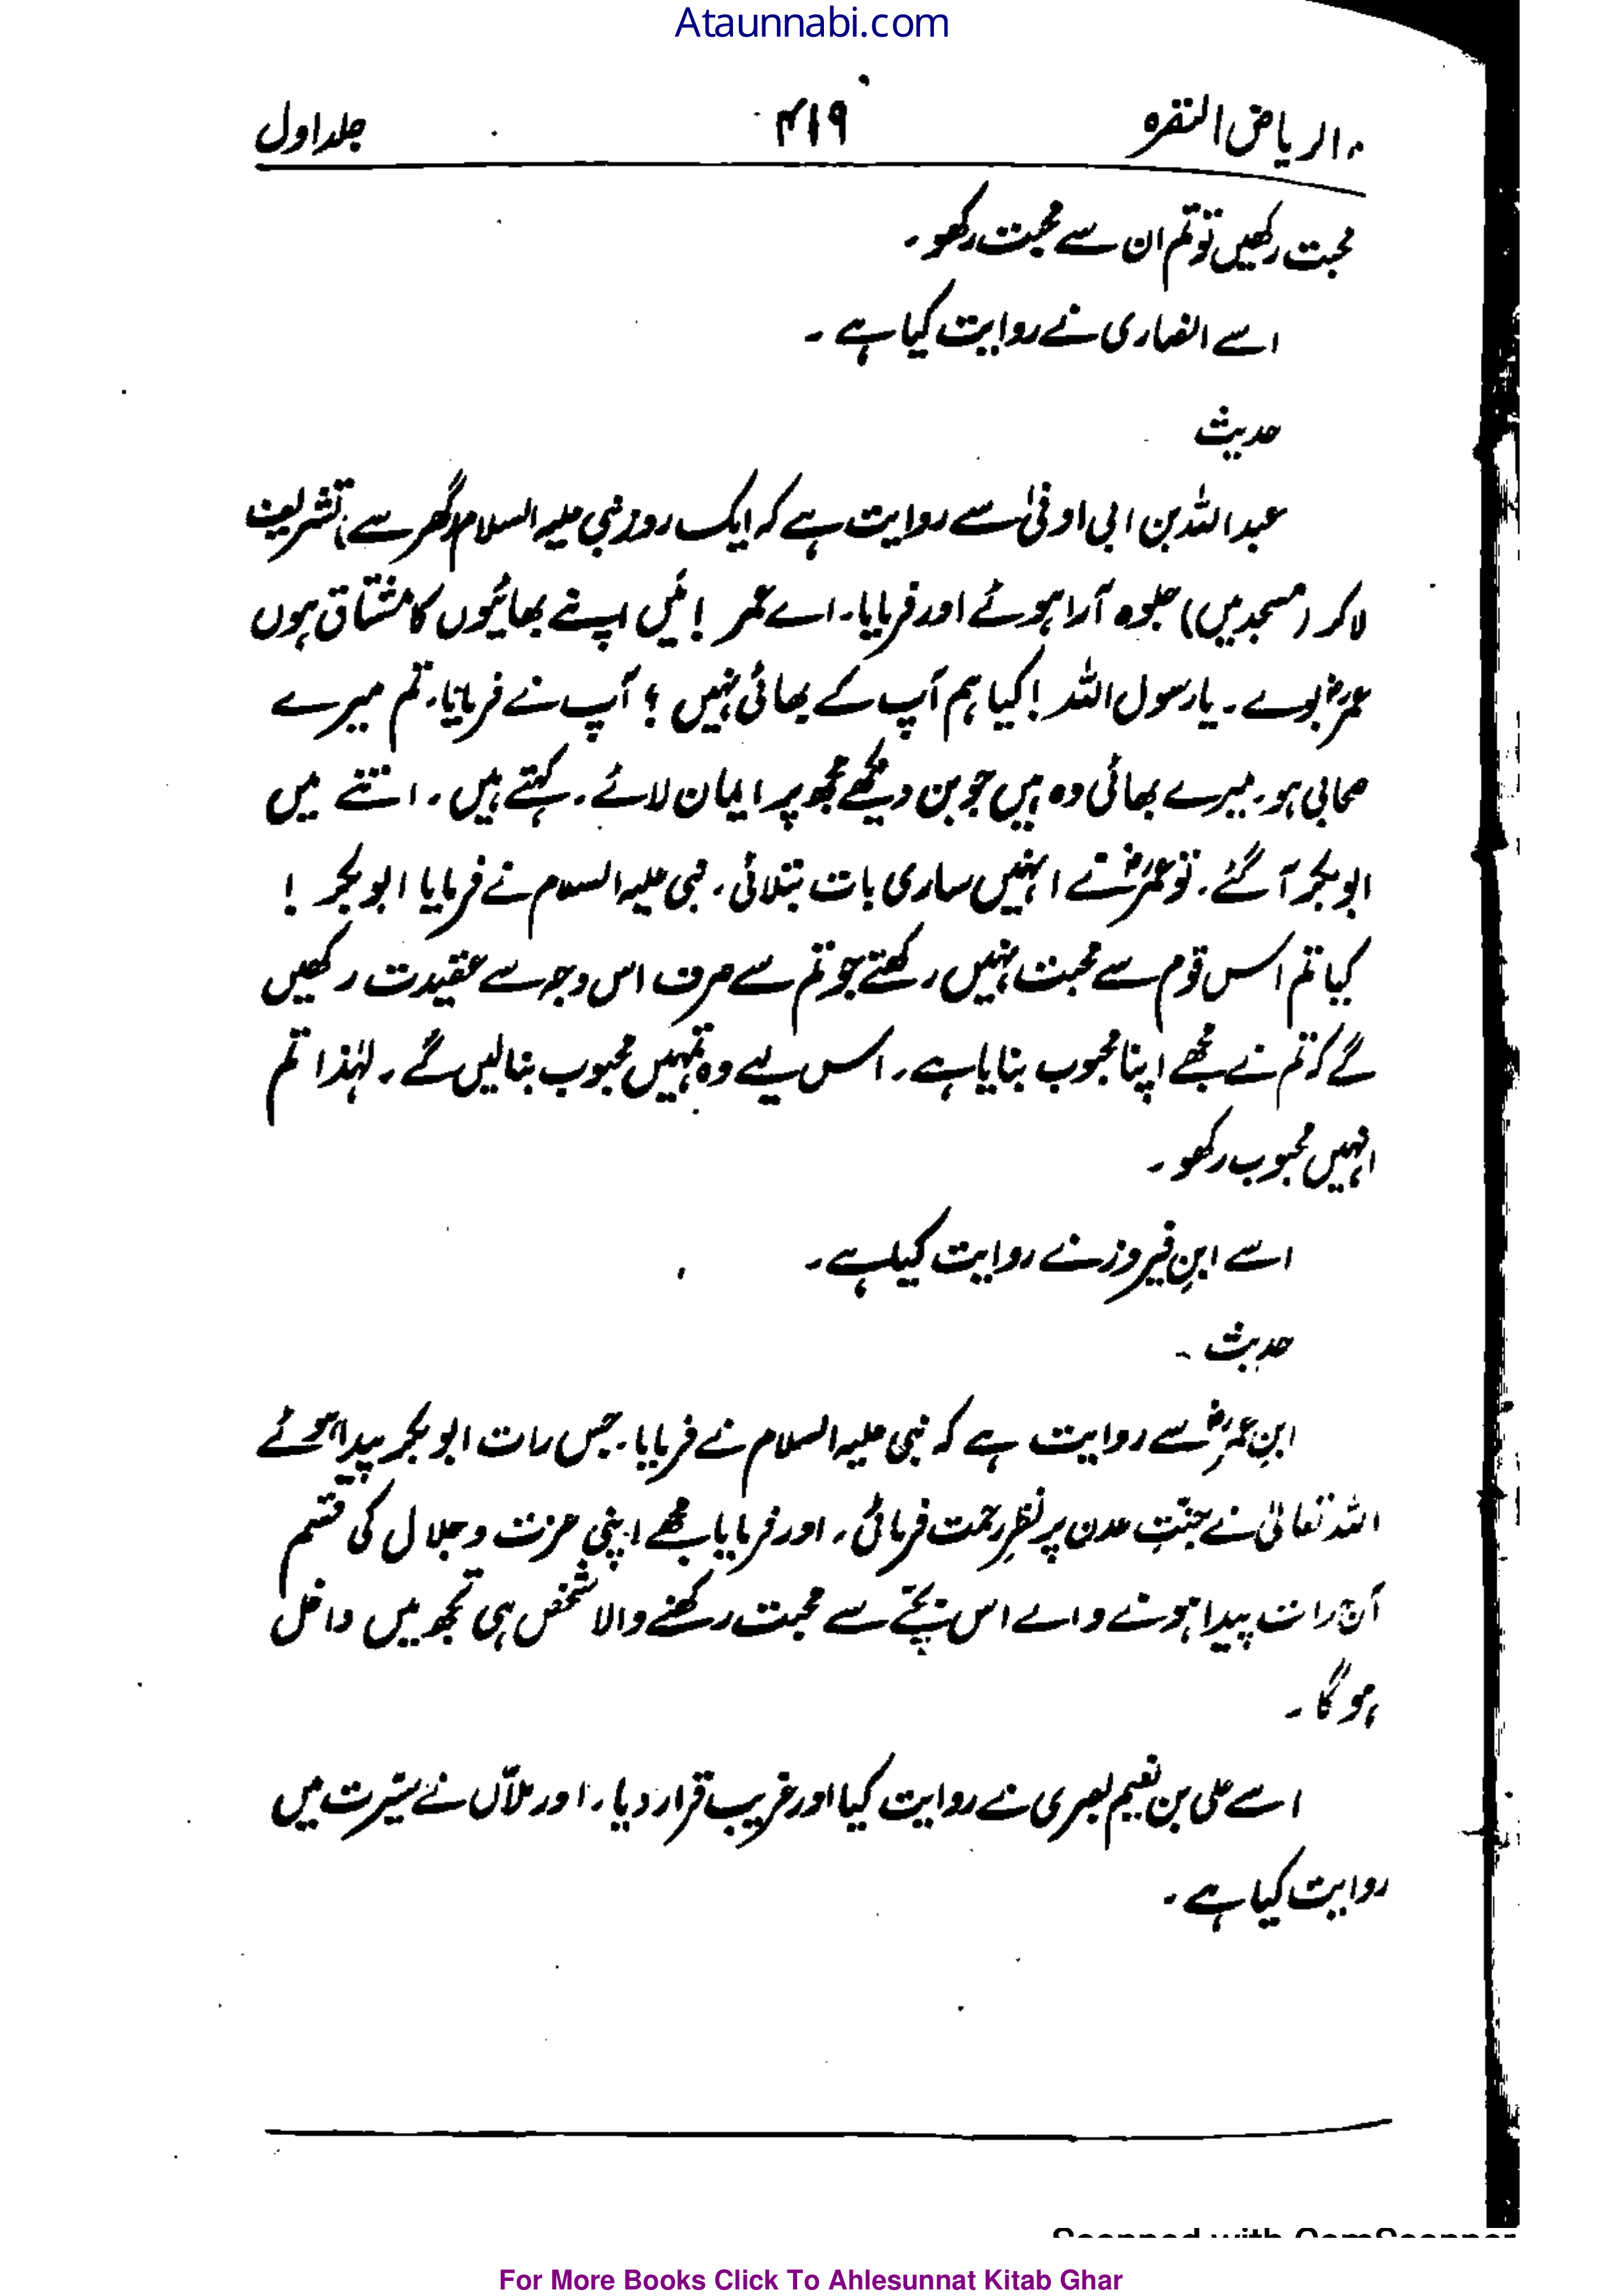 Ataunnabi.com
الریاض النضرہ ۴۱۹ جلد اول
محبت رکھیں تو تم ان سے محبت رکھو۔
اسے انصاری نے روایت کیا ہے۔
حدیث
عبداللہ بن ابی اوفیٰ سے روایت ہے کہ ایک روز نبی علیہ السلام (گھر سے) تشریف
لاکر (مسجد میں) جلوہ آرا ہوئے اور فرمایا۔ اے عمر! میں اپنے بھائیوں کا مشتاق ہوں
عمرؓ بولے۔ یا رسول اللہ! کیا ہم آپ کے بھائی نہیں؟ آپ نے فرمایا۔ تم میرے
صحابی ہو۔ میرے بھائی وہ ہیں جو بن دیکھے مجھ پر ایمان لائے۔ کہتے ہیں۔ اتنے میں
ابوبکر آگئے۔ تو عمرؓ نے انہیں ساری بات بتلائی۔ نبی علیہ السلام نے فرمایا ابوبکر!
کیا تم اس قوم سے محبت نہیں رکھتے جو تم سے صرف اس وجہ سے عقیدت رکھیں
گے کہ تم نے مجھے اپنا محبوب بنایا ہے۔ اس لیے وہ تمہیں محبوب بنالیں گے۔ لہٰذا تم
انہیں محبوب رکھو۔
اسے ابنِ فیروز نے روایت کیا ہے۔
حدیث
ابنِ عمرؓ سے روایت ہے کہ نبی علیہ السلام نے فرمایا۔ جس رات ابوبکر پیدا ہوئے
اللہ تعالیٰ نے جنتِ عدن پر نظرِ رحمت فرمائی۔ اور فرمایا مجھے اپنی عزت و جلال کی قسم
آج رات پیدا ہونے والے اس بچے سے محبت رکھنے والا شخص ہی تجھ میں داخل
ہوگا۔
اسے علی بن نعیم بصری نے روایت کیا اور غریب قرار دیا۔ اور ملاّں نے سیرت میں
روایت کیا ہے۔
Scanned with CamScanner
For More Books Click To Ahlesunnat Kitab Ghar